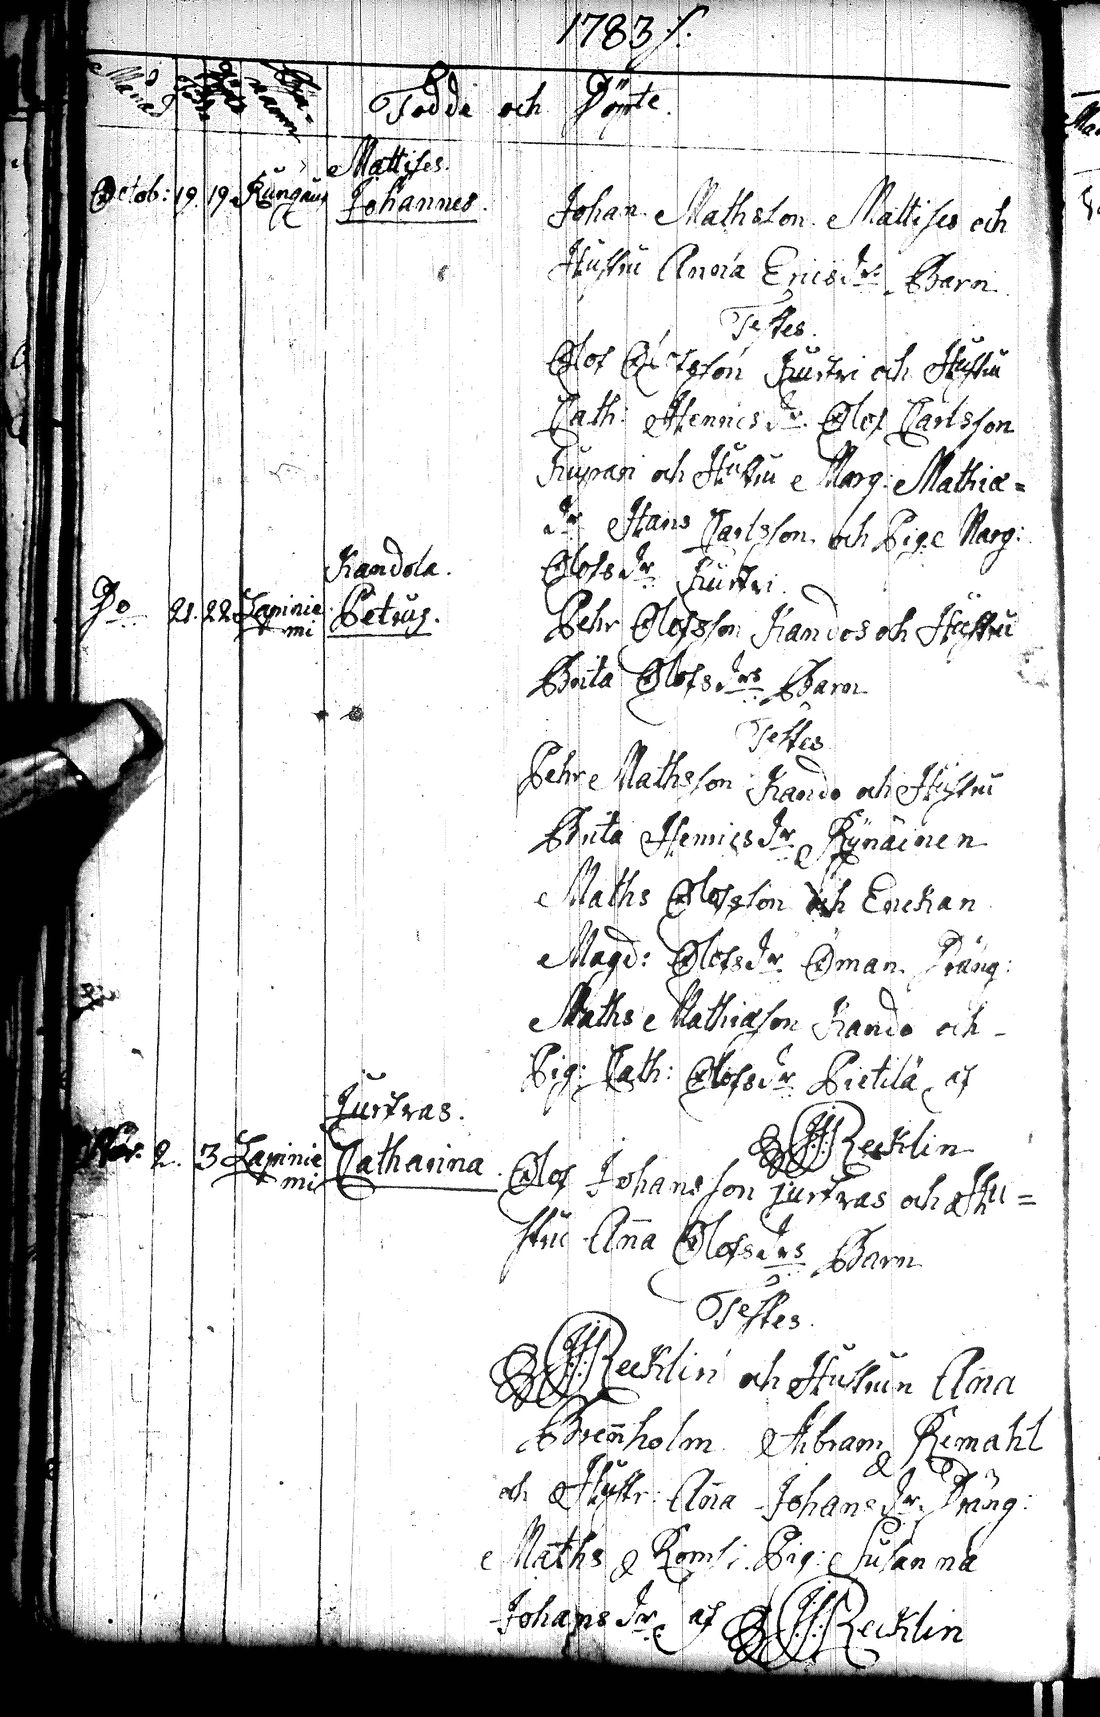 1783 /:
Månad Födde Döpte By namn Födde och Dömte.
Mattises.
Octob: 19. 19. Kungaus Johannes. Johan Mathsson Mattises och
Hustru Anna Erics Drs Barn
Testes.
Olof Olofsson Kurtri och Hustru
Cath: Henrics Dr Olof Carlsson
Kupari och Hustru Marg: Mathiæ=
Dr Hans Carlsson och Pig. Marg:
Kandola. Olofs Dr Kurtri.
Do 21. 22. Lapinie Petrus. Pehr Olofsson Kandos och Hustru
mi
Brita Olofs Drs Barn
Testes
Pehr Mathsson Kando och Hustru
Brita Henrics Dr Rÿnäinen
Maths Olofsson och Enckan
Magd: Olofs Dr Öman. Dräng:
Maths Mathiæson Kando och
Pig: Cath: Olofs Dr Pietilä af
Jurtvas.
Recklin
Nov: 2. 3 Lapinie Catharina. Olof Johansson jurtvas och Hu=
mi
stru Aña Olofs Drs Barn
Testes.
Recklin och Hustrun Aña
Breñholm Abram Remahl
och Hustr: Aña Johans Dr Dräng:
Maths Romsi. Pig: Susanna
Johans Dr af Recklin